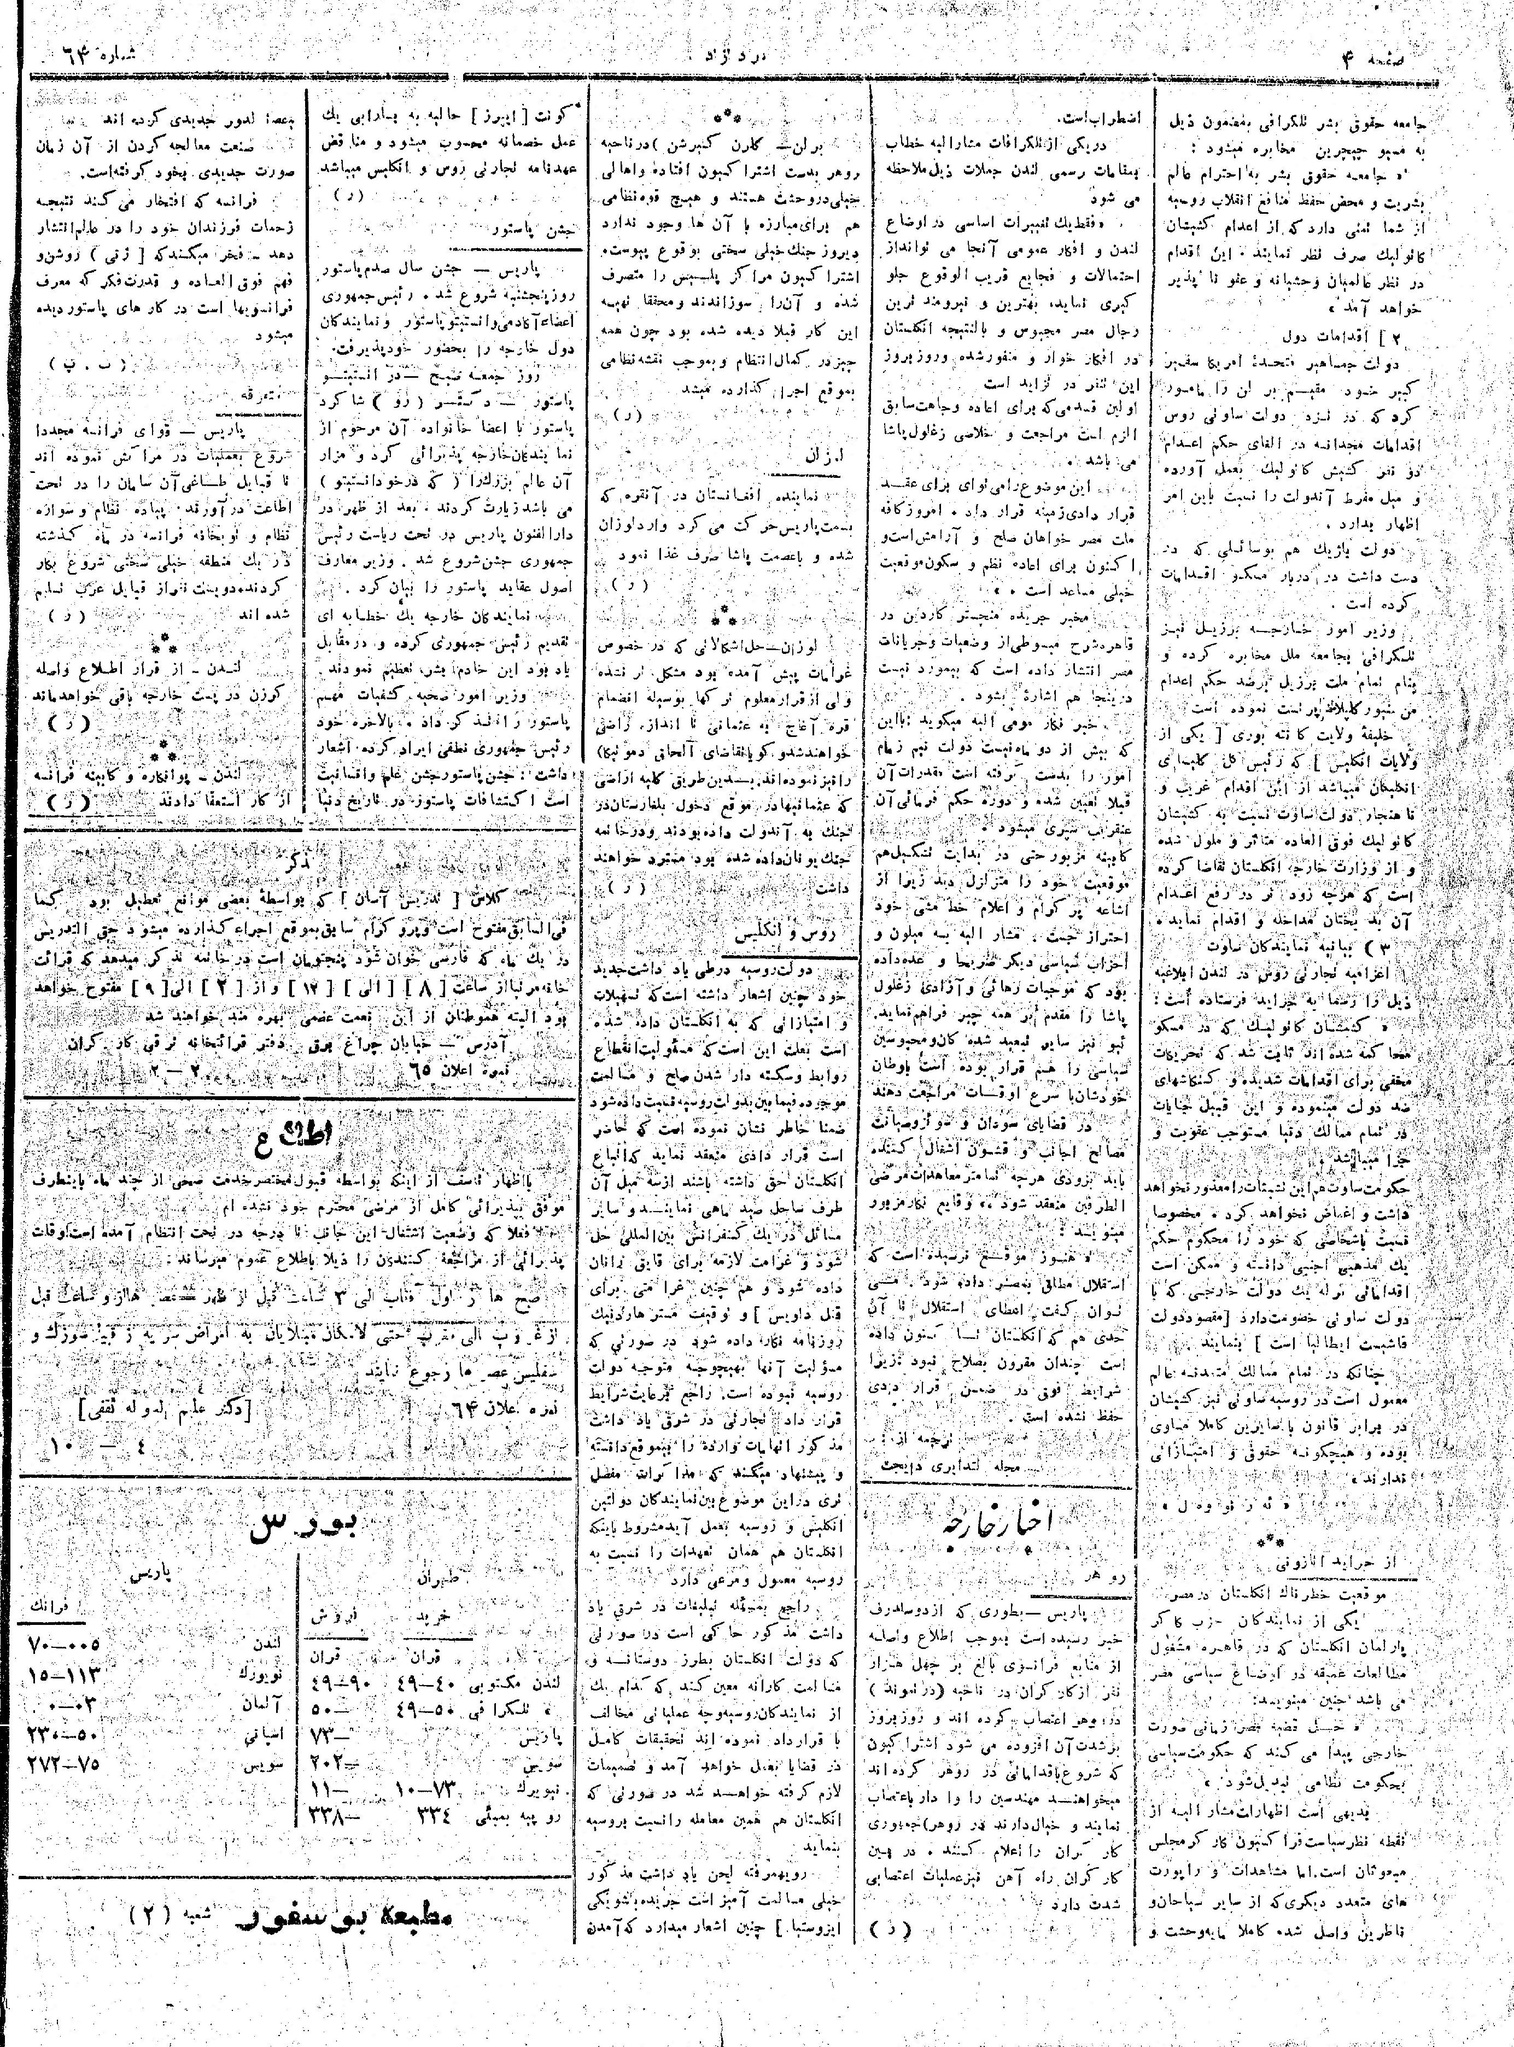 صفحه ۴
مرد آزاد
شماره ۶۴
جامعه حقوق بشر تلگرافی بمضمون ذیل
به مسیو چیچرین مخابره میشود :
« جامعه حقوق بشر به احترام عالم
بشریت و محض حفظ منافع انقلاب روسیه
از شما تمنی دارد که از اعدام کشیشان
کاتولیک صرف نظر نمایند . این اقدام
در نظر عالمیان وحشیانه و عفو نا پذیر
خواهد آمد »
۲ ] اقدامات دول
دولت جماهیر متحدهٔ امریکا سفیر
کبیر خود مقیم بر لن را مامور
کرد که در نزد دولت ساوتی روس
اقدامات مجدانه در الغای حکم اعدام
دو نفر کشیش کاتولیک بعمل آورده
و میل مفرط آندولت را نسبت باین امر
اظهار بدارد .
دولت بلژیک هم بوسائیلی که در
دست داشت در دربار مسکو اقدامات
کرده است .
وزیر امور خارجه برزیل نیز
تلگرافی بجامعه ملل مخابره کرده و
بنام تمام ملت برزیل برضد حکم اعدام
پرتست نموده است
خلیفهٔ ولایت کانته بوری [ یکی از
ولایات انگلیس ] که رئیس کل کلیسای
انگلیکان میباشد از این اقدام غریب و
نا هنجار دولت ساوت نسبت به کشیشان
کاتولیک فوق العاده متاثر و ملول شده
و از وزارت خارجه انگلستان تقاضا کرده
است که هرچه زود تر در رفع اعدام
آن بد بختان مداخله و اقدام نمایده
۳ ) بیانیه نمایندگان ساوت
اعزامیه تجارتی روس در لندن ابلاغیه
ذیل را رسما به جراید فرستاده است :
« کشیشان کاتولیک که در مسکو
محا کمه شده اند ثابت شد که تحریکات
مخفی برای اقدامات شدیده و کنکاشهای
ضد دولت مینموده و این قبیل جنایات
در تمام ممالک دنیا مستوجب عقوبت و
جزا میباشد .
حکومت ساوت هم این تشبثات را معذور نخواهد
داشت و اغماض نخواهد کرد . مخصوصا
نسبت باشخاصی که خود را محکوم حکم
یک مذهبی اجنبی دانسته و ممکن است
اقداماتی برله یک دولت خارجی که با
دولت ساوتی خصومت دارد [مقصود دولت
فاشیست ایطالیا است ] بنمایند
چنانکه در تمام ممالک متمدنه عالم
معمول است در روسیه ساوتی نیز کشیشان
در برابر قانون با سایرین کاملا مساوی
بوده و هیچگونه حقوق و امتیازاتی
ندارند »
***
از جراید
موقعیت خطرناک انگلستان در مصر
یکی از نمایندگان حزب کارگر
پارلمان انگلستان که در قاهره مشغول
مطالعات عمیقه در اوضاع سیاسی مصر
می باشد چنین مینویسد:
« حل قضیه مصر زمانی صورت
خارجی پیدا می کند که حکومت سیاسی
بحکومت نظامی تبدیل شود »
بدیهی است اظهارات مشار الیه از
نقطه نظر سیاست فراکسیون کارگر مجلس
مبعوثان است. اما مشاهدات و راپورت
های متعدد دیگری که از سایر سیاحان و
ناظرین واصل شده کاملا مایه وحشت و
اضطراب است.
در یکی از تلگرافات مشار الیه خطاب
بمقامات رسمی لندن جملات ذیل ملاحظه
می شود
« فقط یک تغییرات اساسی در اوضاع
لندن و افکار عمومی آنجا می تواند از
احتمالات و فجایع قریب الوقوع جلو
گیری نماید، بهترین و نیرومند ترین
رجال مصر محبوس و بالنتیجه انگلستان
در افکار خوار و منفور شده و روز بروز
این تنفر در تزاید است
اولین قدمی که برای اعاده وجاهت سابق
لازم است مراجعت و خلاصی زغلول پاشا
می باشد .
این موضوع را می توان برای عقد
قرار دادی زمینه قرار داد . امروز کافه
ملت مصر خواهان صلح و آرامش است و
اکنون برای اعاده نظم و سکون موقعیت
خیلی مساعد است . »
مخبر جریده منچستر گاردین در
قاهره شرح مبسوطی از وضعیات و جریانات
مصر انتشار داده است که بیمورد نیست
در اینجا هم اشاره بشود .
خبر نگار مومی الیه میگوید : با این
که بیش از دو ماه نیست دولت نسیم زمام
امور را بدست گرفته است مقدرات آن
قبلا تعیین شده و دورهٔ حکم فرمائی آن
عنقریب سپری میشود .
کابینه مزبور حتی در بدایت تشکیل هم
موقعیت خود را متزلزل دید زیرا از
اشاعه پر گرام و اعلام خط مشی خود
احتراز جست . مشار الیه به مبلون و
احزاب سیاسی دیگر صریحا و عده داده
بود که موجبات رهائی و آزادی زغلول
پاشا را مقدم بر همه چیز فراهم نماید.
نیو نیز سایر تبعید شده کان و محبوسین
سیاسی را هم قرار بوده است باوطان
خودشان با سرع اوقات مراجعت دهند
در قضایای سودان و
مصالح اجانب و قشون اشغال کننده
باید بزودی هرچه تمامتر معاهدات مرضی
الطرفین منعقد شود . » وقایع نگار مزبور
مینویسد :
« هنوز موقع نرسیده است که
استقلال مطلق بمصر داده شود . حتی
توان گفت اعطای استقلال تا آن
حدی هم که انگلستان تا کنون داده
است چندان مقرون بصلاح نبود زیرا
شرایط فوق در ضمن قرار دادی
حفظ نشده است .
ترجمه از :
مجله
اخبار خارجه
روهر
پاریس — بطوری که از دوسلدرف
خبر رسیده است بموجب اطلاع واصله
از منابع فرانسوی بالغ بر چهل هزار
نفر از کارگران در ناحیه (درتموند)
در روهر اعتصاب کرده اند و روز بروز
بر شدت آن افزوده می شود اشتراکیون
که شروع باقداماتی در روهر کرده اند
میخواهند مهندسین را وا دار باعتصاب
نمایند و خیال دارند در روهر)جمهوری
کارگران را اعلام کنند . در بین
کارگران راه آهن نیز عملیات اعتصابی
شدت دارد
( ر )
***
برلن — گلزن کیرشن ) در ناحیه
روهر بدست اشترا کیون افتاده و اهالی
خیلی در وحشت هستند و هیچ قوه نظامی
هم برای مبارزه با آن ها وجود ندارد
دیروز جنک خیلی سختی بوقوع پیوست.
اشترا کیون مراکز پلیس را متصرف
شده و آن را سوزاندند و محققا تهیه
این کار قبلا دیده شده بود چون همه
چیز در کمال انتظام و بموجب نقشه نظامی
بموقع اجرا گذارده میشد
( ر )
لوزان
نماینده افغانستان در آنقره که
بسمت پاریس حرکت می کرد وارد لوزان
شده و با عصمت پاشا صرف غذا نمود
( ر )
***
لوزان — حل اشکالاتی که در خصوص
غرامات پیش آمده بود مشکل تر شده
ولی از قرار معلوم ترکها بوسیله انضمام
قره آغاج به عثمانی تا اندازه راضی
خواهند شد و گویا تقاضای الحاق دموتیکا)
را نیز نموده اند بدین طریق کلیه اراضی
که عثمانیها در موقع دخول بلغارستان در
جنک به آندولت داده بودند و در خاتمه
جنک یونان داده شده بود مسترد خواهند
داشت
( ر )
روس و انگلیس
دولت روسیه در طی یاد داشت جدید
خود چنین اشعار داشته است که تسهیلات
و امتیازاتی که به انگلستان داده شده
است بعلت این است که مسئولیت انقطاع
روابط و سکته دار شدن صلح و مسالمت
موجوده فیما بین بدولت روسیه نسبت داده شود
ضمنا خاطر نشان نموده است که حاضر
است قرار دادی منعقد نماید که اتباع
انگلستان حق داشته باشند از سه میل آن
طرف ساحل صید ماهی نمایند و سایر
مسائل در یک کنفرانس بین المللی حل
شود و غرامت لازمه برای قایق رانان
داده شود و هم چنین غرا متی برای
قتل داویس ] و توقیف مستر هاردینک
روزنامه نگار داده شود در صورتی که
مسئولیت آنها بهیچوجه متوجه دولت
روسیه نبوده است. راجع برعایت شرایط
قرار داد تجارتی در شرق یاد داشت
مذکور اتهامات وارده را بیموقع دانسته
و پیشنهاد میکند که مذا کرات مفصل
تری در این موضوع بین نمایندگان دولتین
انگلیس و روسیه بعمل آید مشروط باینکه
انگلستان هم همان تعهدات را نسبت به
روسیه معمول و مرعی دارد
راجع بمسئله تبلیغات در شرق یاد
داشت مذکور حاکی است در صورتی
که دولت انگلستان بطرز دوستانه و
مسالمت کارانه معین کند که کدام یک
از نمایندگان روسیه وجه عملیاتی مخالف
با قرارداد نموده اند تحقیقات کامل
در قضایا بعمل خواهد آمد و تصمیمات
لازم گرفته خواهد شد در صورتی که
انگلستان هم همین معامله را نسبت بروسیه
بنماید
رویهمرفته لحن یاد داشت مذکور
خیلی مسالمت آمیز است جریده بلشویکی
ایزوستیا.] چنین اشعار میدارد که آمدن
کونت [ ایپرز ] حالیه به پارایی یک
عمل خصمانه محسوب میشود و مناقض
عهدنامه تجارتی روس و انگلیس میباشد
( ر )
جشن پاستور
پاریس — جشن سال صدم پاستور
روز پنجشنبه شروع شد . رئیس جمهوری
اعضاء آکادمی و انستیتو پاستور و نمایندگان
دول خارجه را بحضور خود پذیرفت .
روز جمعه صبح — در انستیتو
پاستور — دکتر ( رو ) شاگرد
پاستور با اعضا خانواده آن مرحوم از
نمایندگان خارجه پذیرائی کرد و مزار
آن عالم بزرک را ( که در خود انستیتو )
می باشد زیارت کردند . بعد از ظهر در
دارالفنون پاریس در تحت ریاست رئیس
جمهوری جشن شروع شد . وزیر معارف
اصول عقاید پاستور را بیان کرد .
نمایندگان خارجه یک خطابه ای
تقدیم رئیس جمهوری کرده و در مقابل
یاد بود این خادم بشر، تعظیم نمودند .
وزیر امور صحیه کشفیات مهم
پاستور را تذکر داد . بالاخره خود
رئیس جمهوری نطقی ایراد کرده، اشعار
داشت : جشن پاستور جشن علم و انسانیت
است اکتشافات پاستور در تاریخ دنیا
لدور جدیدی کرده اند
صنعت معالجه کردن از آن زمان
صورت جدیدی بخود گرفته است.
فرانسه که افتخار می کند نتیجه
زحمات فرزندان خود را در عالم انتشار
دهد - فخر میکند که [ ژنی ) روشن و
فهم فوق العاده و قدرت فکر که معرف
فرانسویها است در کار های پاستور دیده
میشود
( ب . پ )
متفرقه
پاریس — قوای فرانسه مجددا
شروع بعملیات در مراکش نموده اند
تا قبایل طاغی آن سامان را در تحت
اطاعت در آورند. پیاده نظام و سواره
نظام و توپخانه فرانسه در ماه گذشته
در یک منطقه خیلی سختی شروع بکار
کردند و دویست نفر از قبایل عرب تسلیم
شده اند ( ر )
***
لندن - از قرار اطلاع واصله
کرزن در پست خارجه باقی خواهد ماند
( ر )
***
لندن - پوانکاره و کابینه فرانسه
از کار استعفا دادند ( ر )
تذکر
کلاس [ تدریس آسان ] که بواسطهٔ بعضی موانع تعطیل بود کما
فی السابق مفتوح است و پروگرام سابق بموقع اجراء گذارده میشود حق التدریس
در یک ماه که فارسی خوان شود پنجتومان است در خاتمه تذکر میدهد که قرائت
خانه مرتبا از ساعت [ ۸ ] [ الی ] [ ۱۲ ] و از [ ۲ ] الی [ ۹ ] مفتوح خواهد
بود البته هموطنان از این نعمت عضمی بهره مند خواهند شد
آدرس — خیابان چراغ برق دفتر قرائتخانه ترقی کارگران
نمره اعلان ۶۵ ۲ — ۲
اطلاع
با اظهار تاسف از اینکه بواسطه قبول مختصر خدمت صحی از چند ماه باینطرف
موفق بپذیرائی کامل از مرضی محترم خود نشده ام
فعلا که وضعیت اشتغال این جانب تا درجه در تحت انتظام آمده است اوقات
پذیرائی از مراجعه کنندن را ذیلا باطلاع عموم میرساند :
صبح ها از اول آفتاب الی ۳ ساعت قبل از ظهر عصر ها از و ساعت قبل
از غروب الی مغرب حتی الامکان مبتلایان به امراض سریه از قبیل سوزنک و
سفلیس عصر ها رجوع نمایند
نمره اعلان ۶۴ [دکتر علیم الدوله ثقفی]
۴ — ۱۰
بورس
طهران
خرید فروش
قران قران
لندن مکتوبی ۴۰—۴۹ ۹۰—۴۹
» تلگرافی ۵۰—۴۹ —۵۰
پاریس —۷۳
سویس —۲۰۲
نیویرک ۷۳—۱۰ —۱۱
روپیه بمبئی ۳۳۴ —۳۳۸
پاریس
فرانک
لندن ۰۰۵—۷۰
نویورک ۱۱۳—۱۵
آلمان ۰۳—۰
اسپانی ۵۰—۲۳۰
سویس ۷۵—۲۷۲
مطبعه بوسفور شعبه (۲)